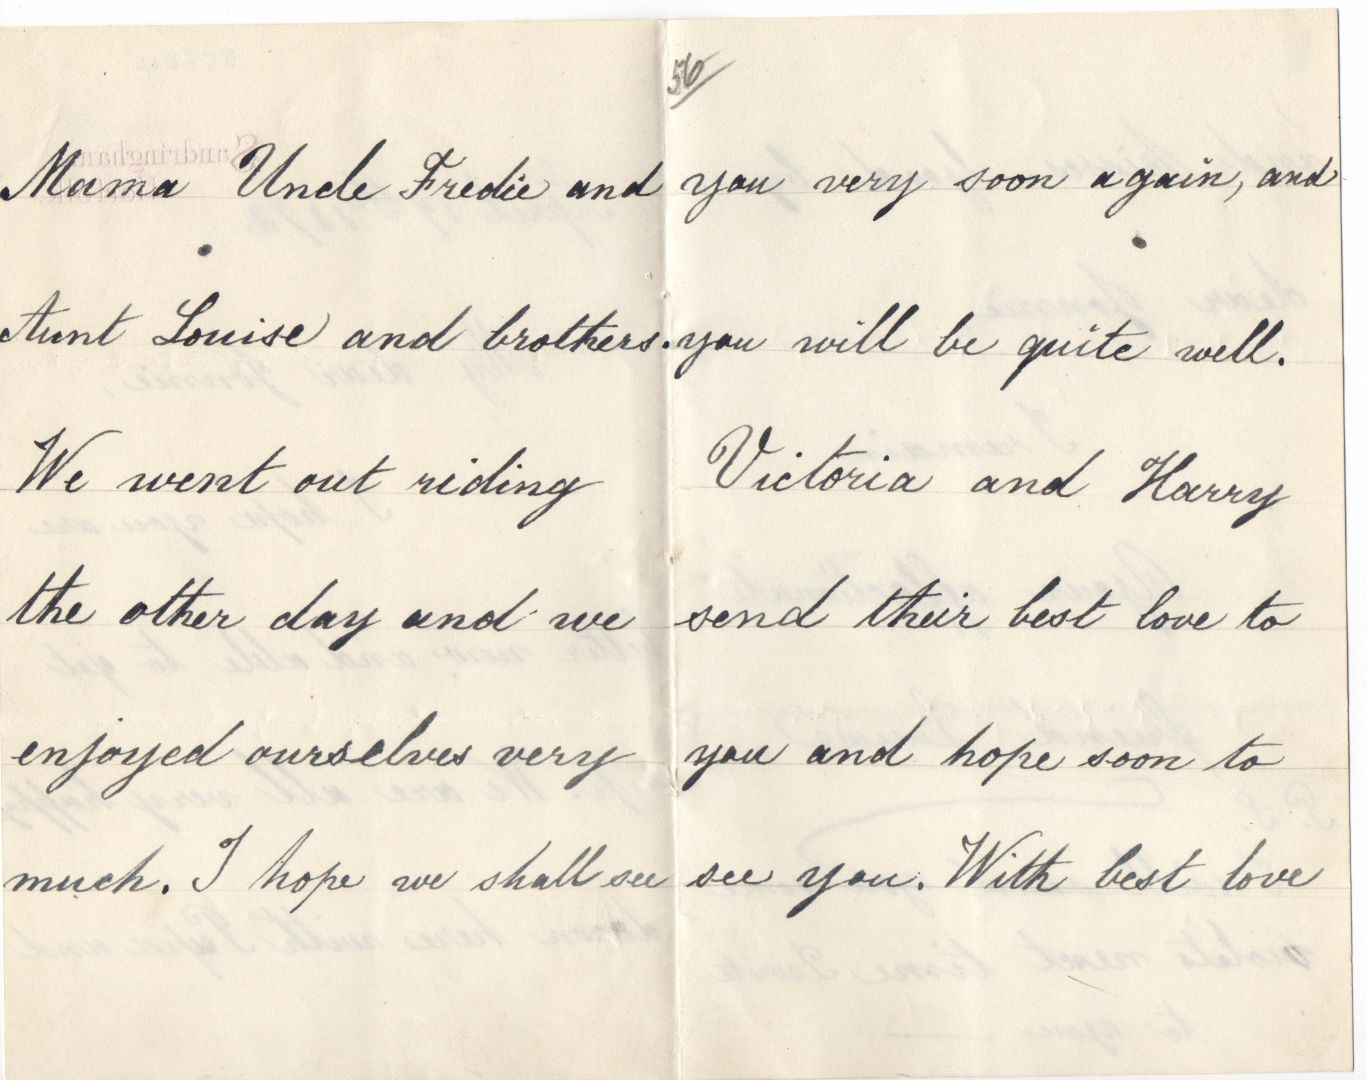 56
Mama Uncle Fredie and
Aunt Louise and brothers.
We went out riding
the other day and we
enjoyed ourselves very
much. I hope we shall see
you very soon again, and
you will be quite well.
Victoria and Harry
send their best love to
you and hope soon to
see you. With best love